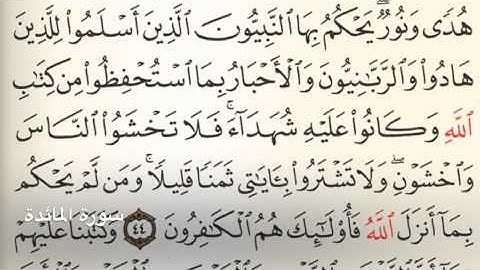 هُدًى وَنُورٌ ۚ يَحْكُمُ بِهَا ٱلنَّبِيُّونَ ٱلَّذِينَ أَسْلَمُوا۟ لِلَّذِينَ
هَادُوا۟ وَٱلرَّبَّٰنِيُّونَ وَٱلْأَحْبَارُ بِمَا ٱسْتُحْفِظُوا۟ مِن كِتَٰبِ
ٱللَّهِ وَكَانُوا۟ عَلَيْهِ شُهَدَآءَ ۚ فَلَا تَخْشَوُا۟ ٱلنَّاسَ
وَٱخْشَوْنِ ۖ وَلَا تَشْتَرُوا۟ بِـَٔايَٰتِى ثَمَنًا قَلِيلًا ۚ وَمَن لَّمْ يَحْكُم
سورة المائدة
بِمَآ أَنزَلَ ٱللَّهُ فَأُو۟لَٰٓئِكَ هُمُ ٱلْكَٰفِرُونَ ٤٤ وَكَتَبْنَا عَلَيْهِمْ